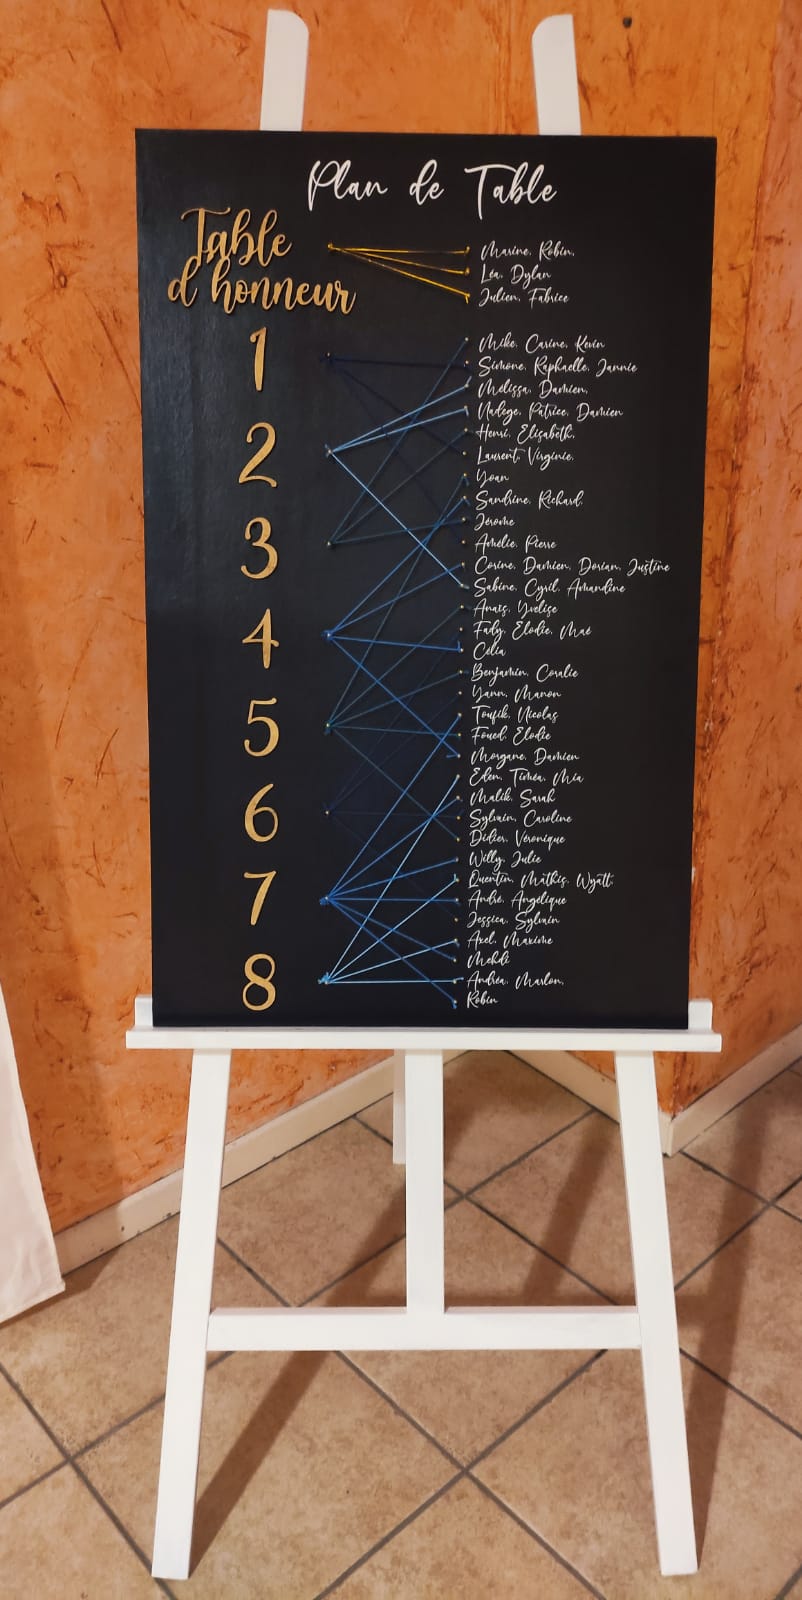 Plan de Table
Table
d'honneur
Marine, Robin,
Léa, Dylan
Julien, Fabrice
1
2
3
4
5
6
7
8
Mike, Carine, Kevin
Simone, Raphaelle, Jannie
Mélissa, Damien,
Nadège, Patrice, Damien
Henri, Elisabeth,
Laurent, Virginie,
Yoan
Sandrine, Richard,
Jérome
Amélie, Pierre
Corine, Damien, Dorian, Justine
Sabine, Cyril, Amandine
Anaïs, Yvelise
Fady, Elodie, Maé
Célia
Benjamin, Coralie
Yann, Manon
Toufik, Nicolas
Foued, Elodie
Morgane, Damien
Eden, Timéa, Mia
Malik, Sarah
Sylvain, Caroline
Didier, Véronique
Willy, Julie
Quentin, Mathis, Wyatt,
André, Angélique
Jessica, Sylvain
Axel, Maxime
Mehdi
Andréa, Marlon,
Robin